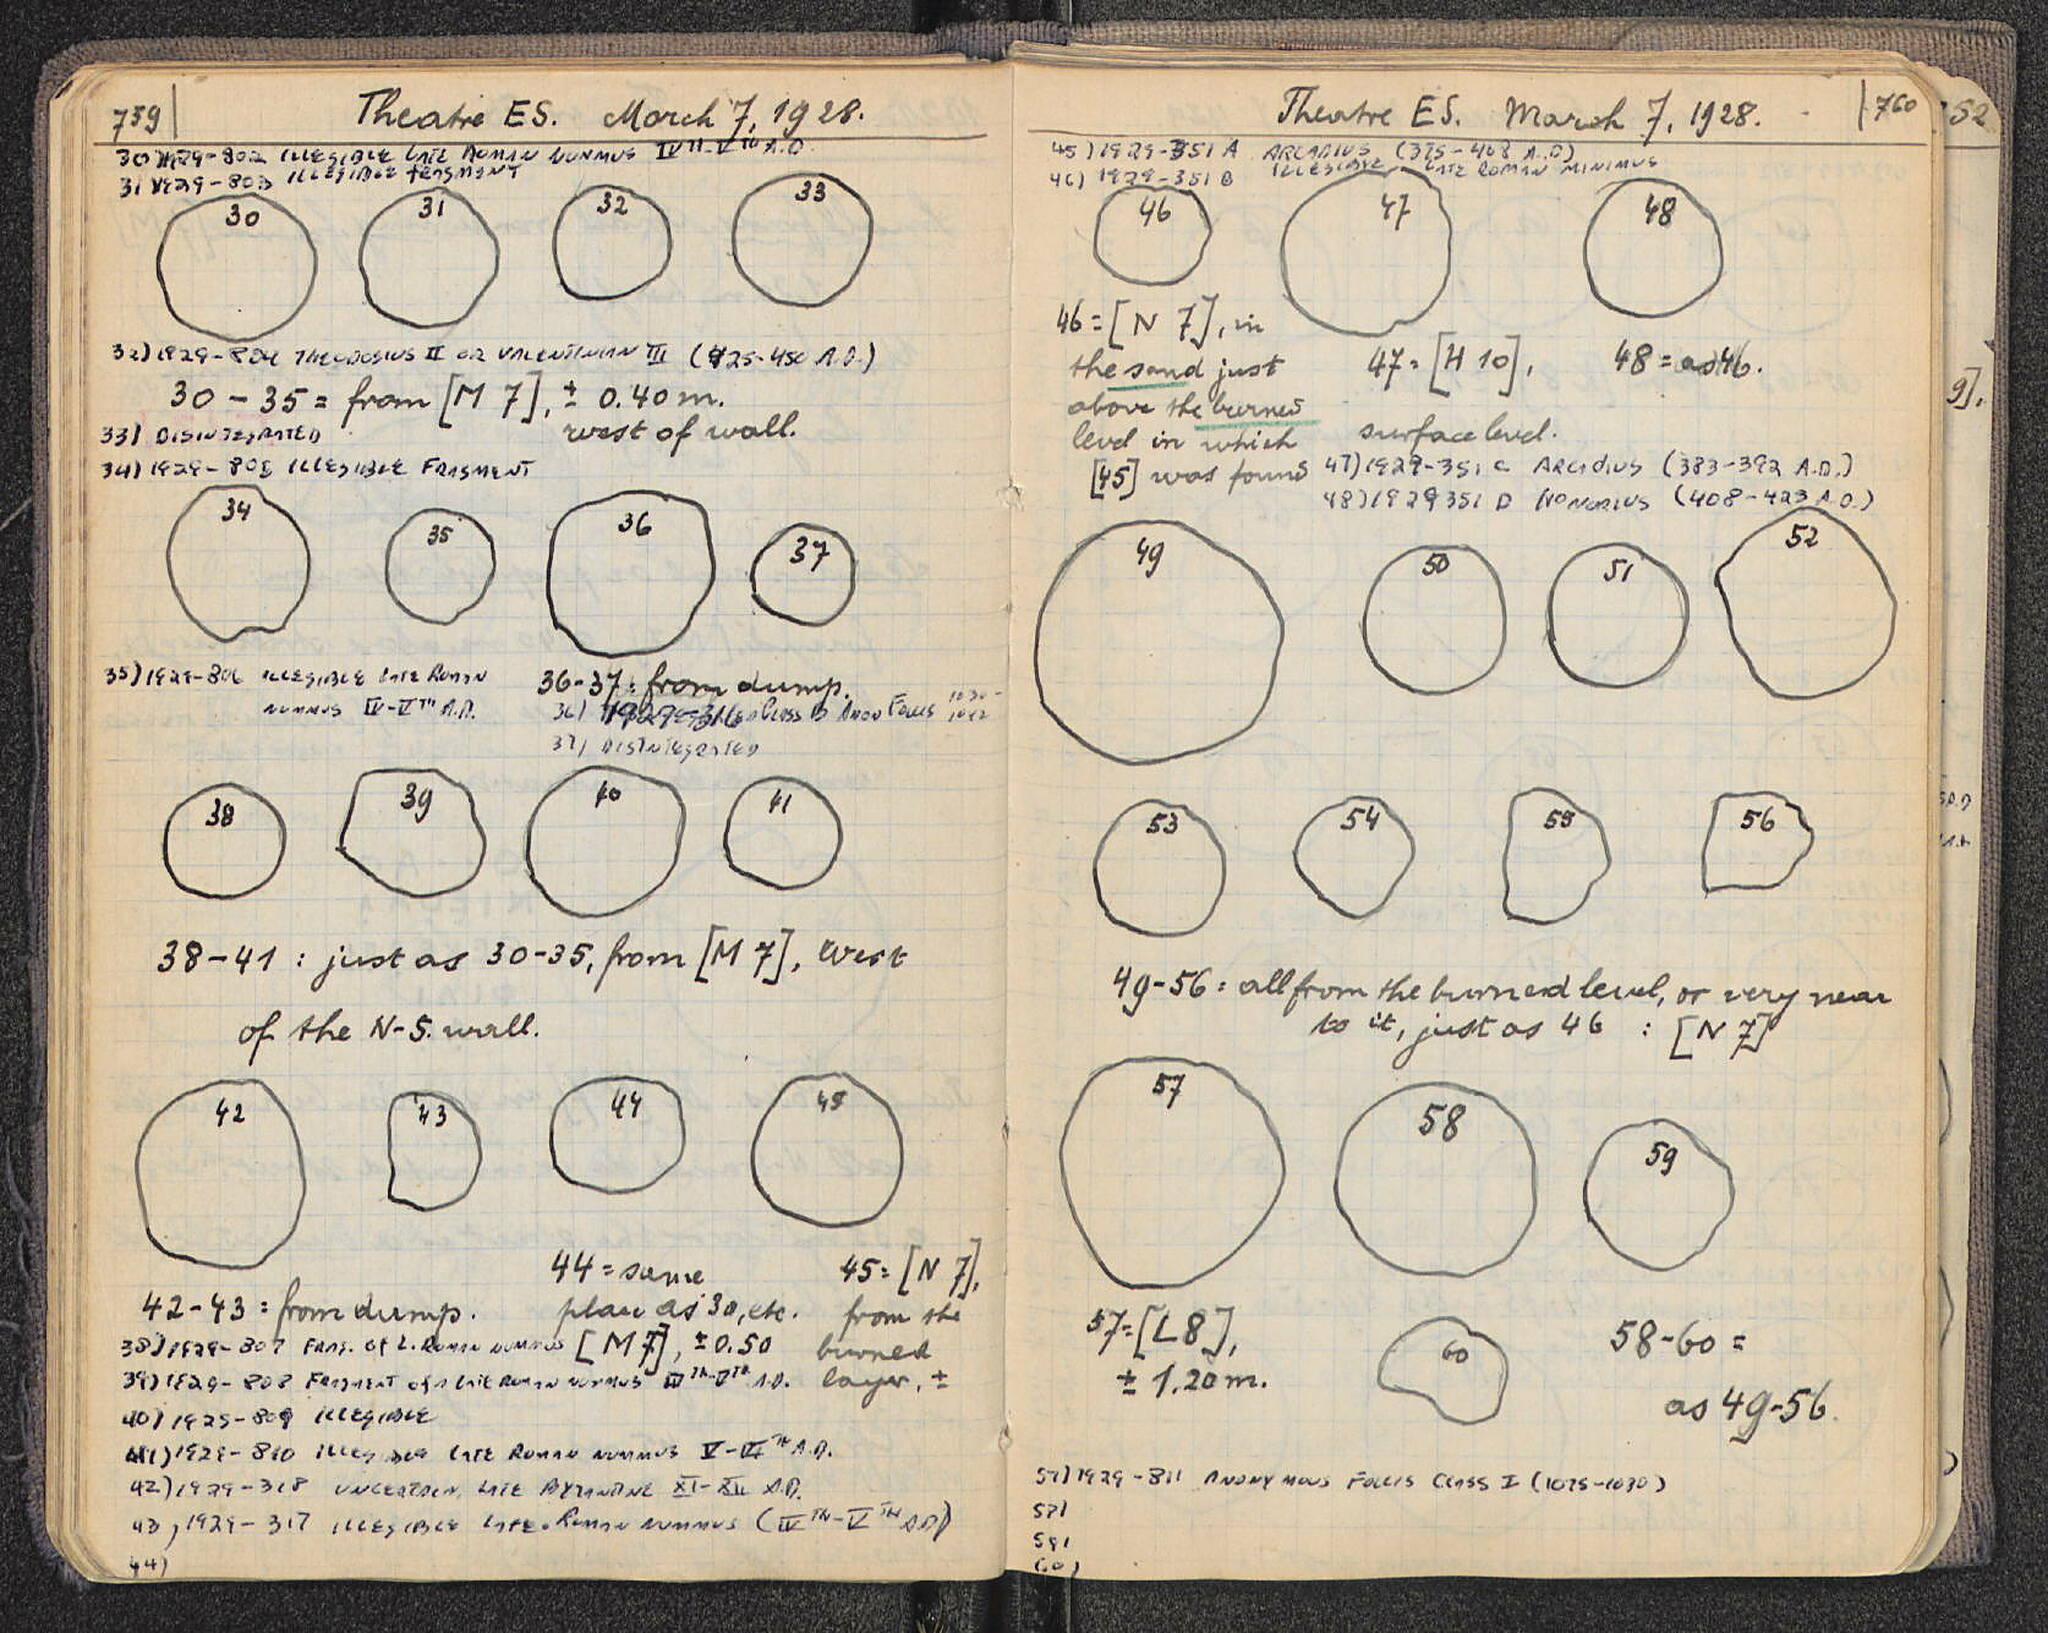 759
Theatre ES. March 7, 1928.
30) 1929-802 ILLEGIBLE LATE ROMAN NUMMUS IVTH-VTH A.D.
31) 1929-803 ILLEGIBLE FRAGMENT
30 31 32 33
32) 1929-804 THEODOSIUS II OR VALENTINIAN III (425-450 A.D.)
30-35 = from [M 7], ± 0.40 m.
west of wall.
33) DISINTEGRATED
34) 1929-805 ILLEGIBLE FRAGMENT
34 35 36 37
35) 1929-806 ILLEGIBLE LATE ROMAN
NUMMUS IV-VTH A.D.
36-37: from dump.
36) 1929-316 CLASS B ANON FOLLIS 1030-
1042
37) DISINTEGRATED
38 39 40 41
38-41: just as 30-35, from [M 7], West
of the N-S. wall.
42 43 44 45
42-43 = from dump.
44 = same
place as 30, etc.
[M 7], ± 0.50
45 = [N 7],
from the
burned
layer, ±
38) 1929-807 FRAG. OF L. ROMAN NUMMUS
39) 1929-808 FRAGMENT OF A LATE ROMAN NUMMUS IVTH-VTH A.D.
40) 1929-809 ILLEGIBLE
41) 1929-810 ILLEGIBLE LATE ROMAN NUMMUS V-VITH A.D.
42) 1929-318 UNCERTAIN LATE BYZANTINE XI-XII A.D.
43) 1929-317 ILLEGIBLE LATE ROMAN NUMMUS (IVTH-VTH A.D.)
44)
Theatre ES. March 7, 1928.
760
45) 1929-351 A ARCADIUS (395-408 A.D.)
46) 1929-351 B ILLEGIBLE LATE ROMAN MINIMUS
46 47 48
46 = [N 7], in
the sand just
above the burned
level in which
[45] was found
47 = [H 10],
surface level.
48 = as 46.
47) 1929-351 C ARCADIUS (383-392 A.D.)
48) 1929 351 D HONORIUS (408-423 A.D.)
49 50 51 52
53 54 55 56
49-56 = all from the burned level, or very near
to it, just as 46 : [N 7]
57 58 59
57 = [L 8],
± 1.20 m.
60
58-60 =
as 49-56.
57) 1929-811 ANONYMOUS FOLLIS CLASS I (1075-1080)
58)
59)
60)
52
9].